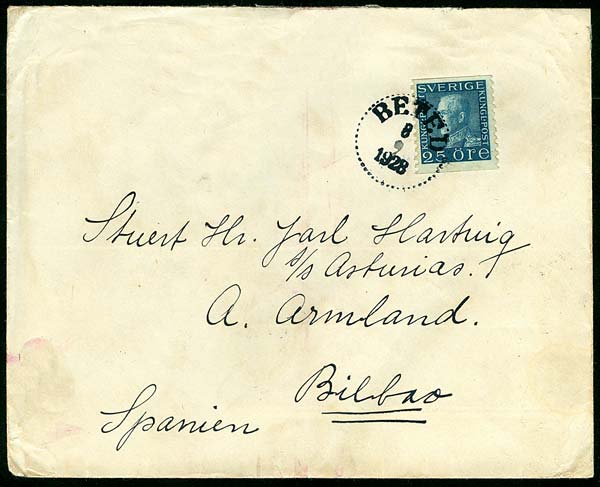 SVERIGE
KUNGL. POST
KUNGL. POST
25 ÖRE
BETEL
8
9
1928
Stuert Hr. Jarl Hartvig
s/s Asturias.
A. Armland.
Bilbao
Spanien